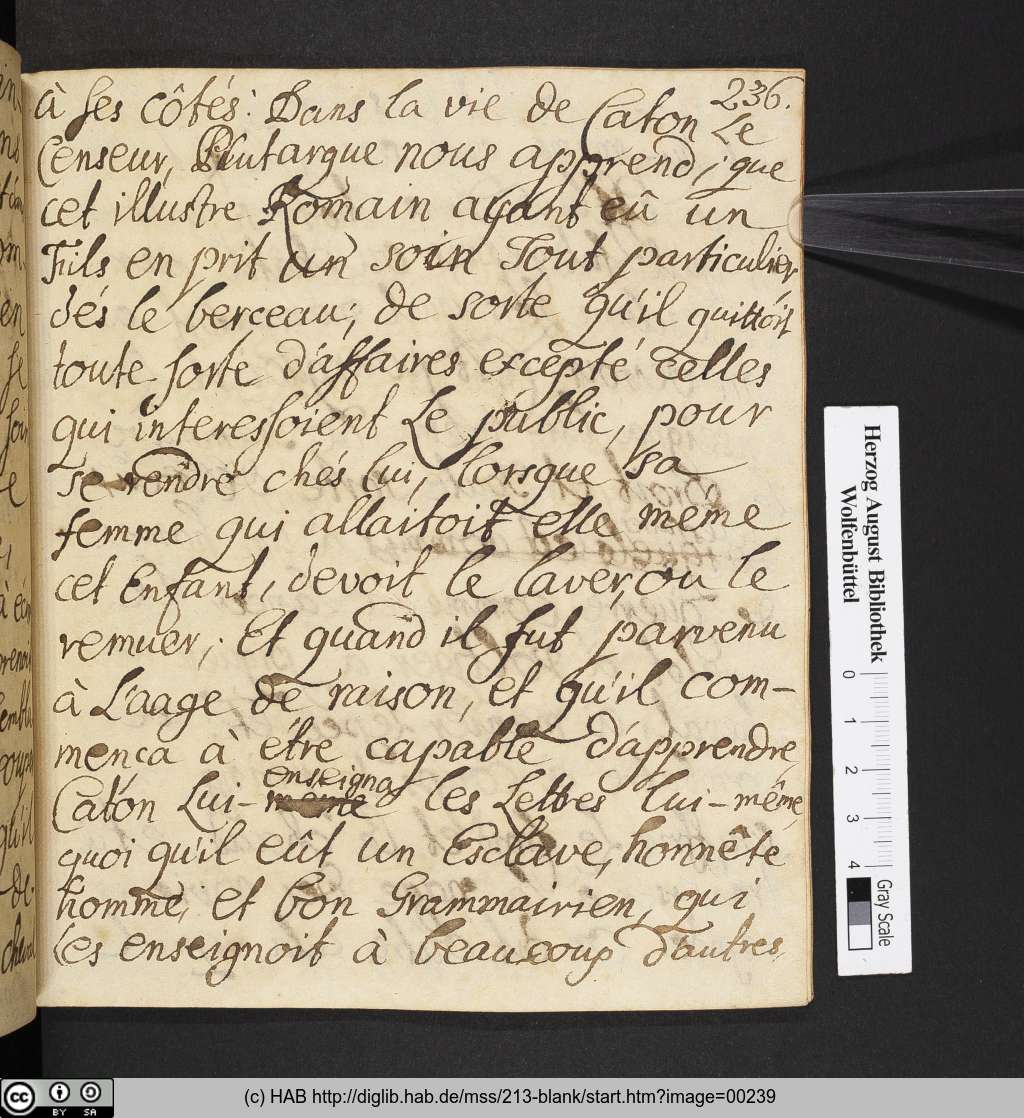 236.
à ses côtés. Dans la vie de Caton Le
Censeur, Plutarque nous apprend; que
cet illustre Romain ayant eû un
Fils en prit un soin Tout particulier
dés le berceau; de sorte qu'il quittoit
toute sorte d'affaires excepté celles
qui interessoient Le public, pour
se rendre chés lui, lorsque sa
femme qui allaitoit elle meme
cet Enfant, devoit le laver, ou le
remuer; Et quand il fut parvenu
à L'aage de raison, et qu'il com-
menca à étre capable d'apprendre,
Caton Lui- enseigna les Lettres lui-même,
quoi qu'il eût un Esclave, honnête
homme, et bon Grammairien, qui
les enseignoit à beaucoup d'autres.
Herzog August Bibliothek
Wolfenbüttel
0 1 2 3 4
Gray Scale
cc BY SA
(c) HAB http://diglib.hab.de/mss/213-blank/start.htm?image=00239